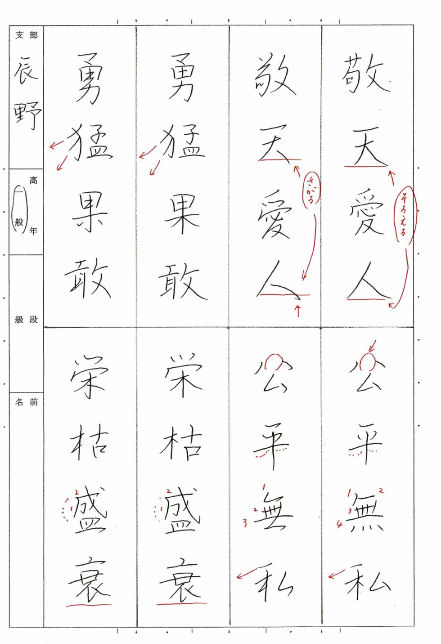 敬天愛人
そろえる
公平無私
1 2 3 4
敬天愛人
さがる
公平無私
1 2 3
勇猛果敢
栄枯盛衰
1 2
勇猛果敢
栄枯盛衰
1 2
支部
辰野
高年
一般
段級
名前